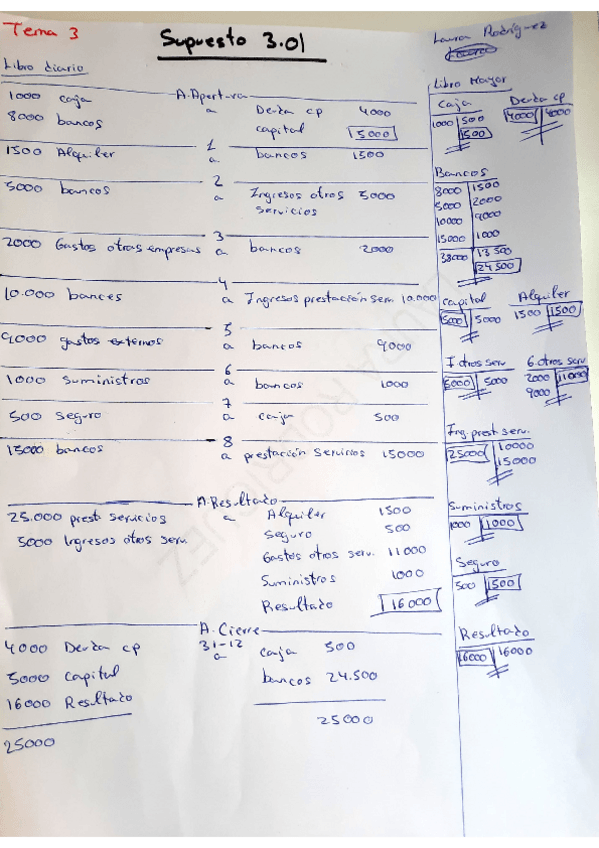 Tema 3
Supuesto 3.01
Laura Rodríguez
Libro diario
A. Apertura
1000 caja a Deuda cp 4000
8000 bancos capital 5000
1
1500 Alquiler a bancos 1500
2
5000 bancos a Ingresos otros 5000
servicios
3
2000 Gastos otras empresas a bancos 2000
4
10.000 bancos a Ingresos prestación serv. 10.000
5
9000 gastos externos a bancos 9000
6
1000 suministros a bancos 1000
7
500 seguro a caja 500
8
15000 bancos a prestación servicios 15000
A. Resultado
25.000 prest. servicios a Alquiler 1500
5000 Ingresos otros serv. seguro 500
Gastos otros serv. 11000
Suministros 1000
Resultado 16000
A. Cierre
31-12
4000 Deuda cp a caja 500
5000 capital bancos 24.500
16000 Resultado
25000
25000
Libro Mayor
Caja Deuda cp
1000 500 4000 4000
500
Bancos
8000 1500
5000 2000
10000 9000
15000 1000
38000 13500
24500
capital Alquiler
5000 5000 1500 1500
I otros serv G otros serv
5000 5000 2000 11000
9000
Ing. prest serv.
25000 10000
15000
Suministros
1000 1000
Seguro
500 500
Resultado
16000 16000
LAURA RODRIGUEZ